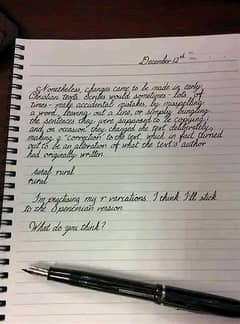 December 13th
Nonetheless, changes came to be made in early
Christian texts. Scribes would sometimes - lots of
times - make accidental mistakes, by misspelling
a word, leaving out a line, or simply bungling
the sentences they were supposed to be copying;
and on occasion they changed the text deliberately,
making a "correction" to the text, which in fact turned
out to be an alteration of what the text's author
had originally written.
rural, rural
rural
I'm practising my r variations. I think I'll stick
to the Spencerian version.
What do you think?